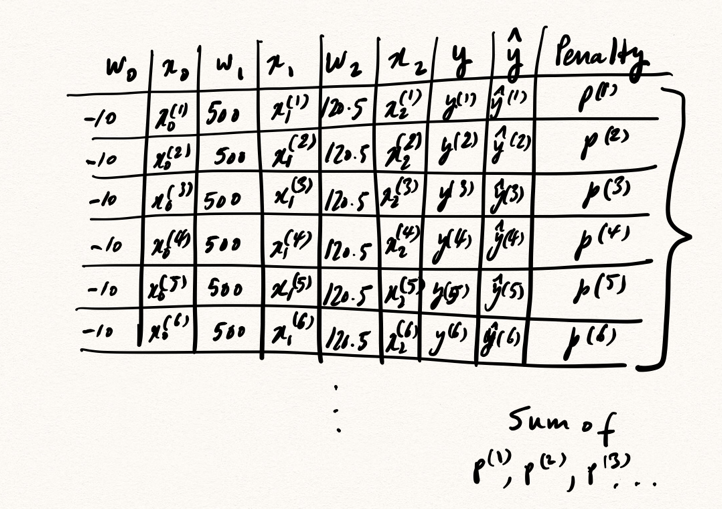 w₀ x₀ w₁ x₁ w₂ x₂ y ŷ Penalty
-10 x₀⁽¹⁾ 500 x₁⁽¹⁾ 120.5 x₂⁽¹⁾ y⁽¹⁾ ŷ⁽¹⁾ p⁽¹⁾
-10 x₀⁽²⁾ 500 x₁⁽²⁾ 120.5 x₂⁽²⁾ y⁽²⁾ ŷ⁽²⁾ p⁽²⁾
-10 x₀⁽³⁾ 500 x₁⁽³⁾ 120.5 x₂⁽³⁾ y⁽³⁾ ŷ⁽³⁾ p⁽³⁾
-10 x₀⁽⁴⁾ 500 x₁⁽⁴⁾ 120.5 x₂⁽⁴⁾ y⁽⁴⁾ ŷ⁽⁴⁾ p⁽⁴⁾
-10 x₀⁽⁵⁾ 500 x₁⁽⁵⁾ 120.5 x₂⁽⁵⁾ y⁽⁵⁾ ŷ⁽⁵⁾ p⁽⁵⁾
-10 x₀⁽⁶⁾ 500 x₁⁽⁶⁾ 120.5 x₂⁽⁶⁾ y⁽⁶⁾ ŷ⁽⁶⁾ p⁽⁶⁾
⋮
Sum of
p⁽¹⁾, p⁽²⁾, p⁽³⁾...